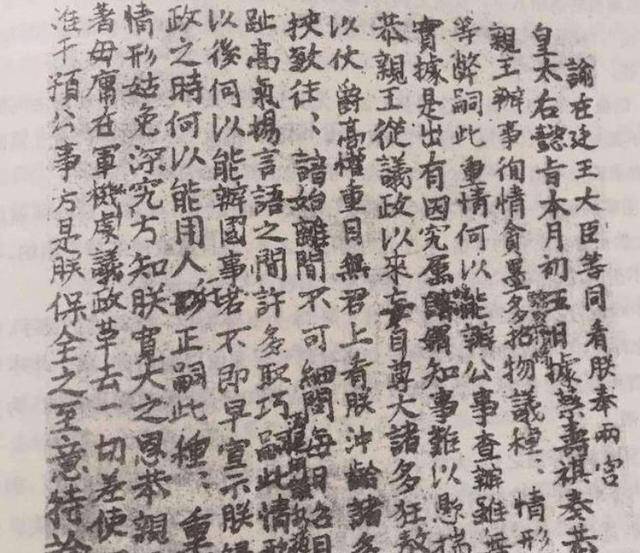 諭在廷王大臣等同看朕奉兩宮
皇太后懿旨本月初五日據蔡壽祺奏恭
親王辦事徇情貪墨多招物議種〻情形
等弊嗣此重情何以能辦公事查辦雖無
實據是出有因究屬知事難以懸揣
恭親王從議政以來妄自尊大諸多狂敖
以仗爵高權重目無君上看朕沖齡諸多
挾致往〻諳始離間不可細問每日召見
趾高氣揚言語之間許多取巧嗣此情形
以後何以能辦國事若不即早宣示朕歸
政之時何以能用人行正嗣此種〻重
情形姑免深究方知朕寬大之恩恭親
著毋庸在軍機處議政革去一切差使
准干預公事方是朕保全之至意特諭